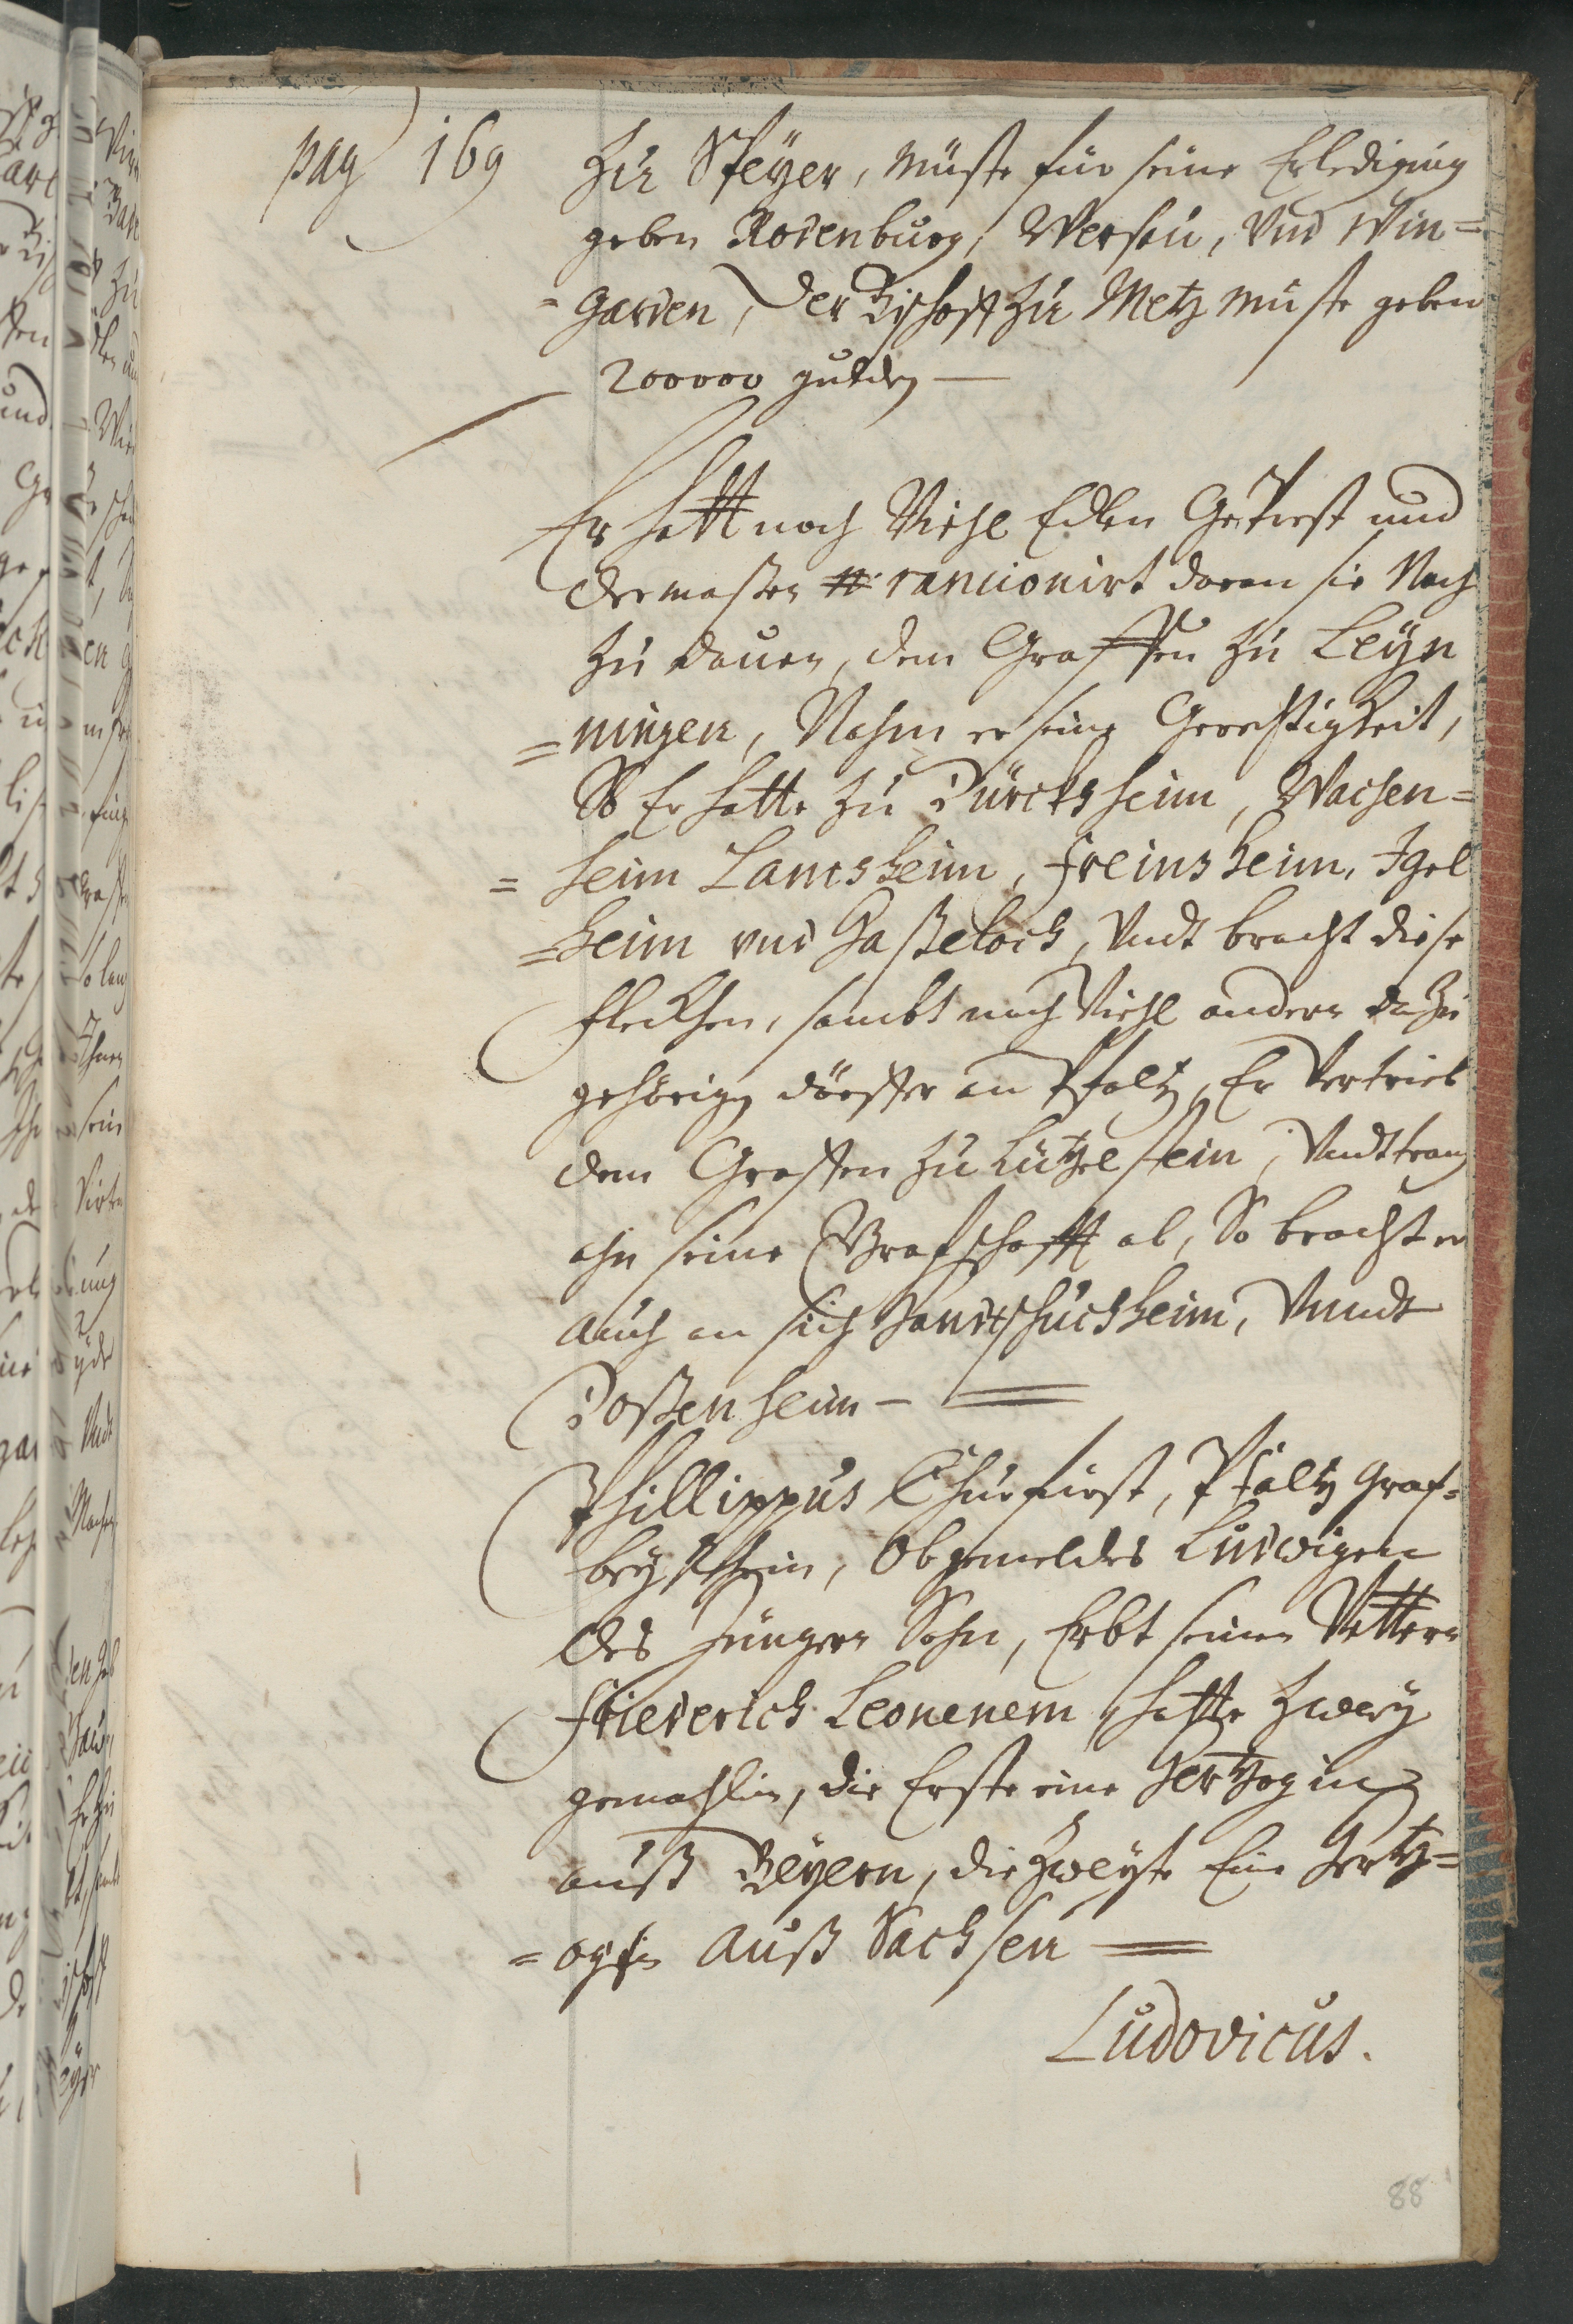 pag 169
Zu Speÿer, müste für seine Erledigung
geben Rodenburg, Wersau, Vnd Win=
=garden, Der Bischoff zu Metz müste geben
200000 gulden —
Er hatt noch Viehl Edlen Geprest und
dermaßen rancionirt daran sie Noch
zu dauen, dem Graffen zu Leÿn
=ningen, Nahm er seine Gerechtigkeit,
So Er hatte zu Dürcksheim, Wachen=
=heim Lamsheim, freinsheim, Igel
=heim vnd Haßeloch, Vndt bracht diese
fleckhen, sambt noch Viehl andern dazu
gehörigen dörffer an Pfaltz, Er Vertrieb
dem Graffen zu Lützelstein, Vndt trang
ihn seine Grafschafft ab, So bracht er
auch an sich Handtschuchsheim, Vnndt
Doßenheim — =
Phillippus Churfürst, Pfaltz Graf=
beÿ Rhein, Obgemeldes Ludwigen
des Jüngern Sohn, Erbt seinen Vettern
friederich Leonenem, hatte Zweÿ
gemahlin, die Erste eine Hertzogin
auß Beÿern, die Zweÿte Eine Hertz=
=ogin auß Sachsen =
Ludovicus.
88